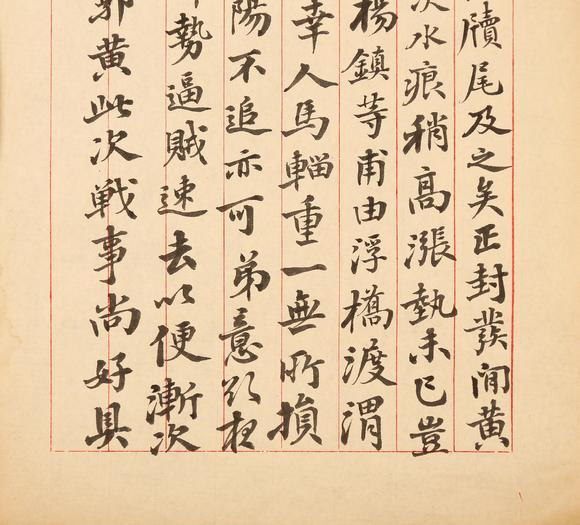 牘尾及之矣正封發间黄
水痕稍高漲執未已豈
楊鎮等甫由浮橋渡渭
幸人馬輜重一無所損
陽不追亦可弟意欲
勢逼賊速去以便漸次
郭黄此次戦事尚好具